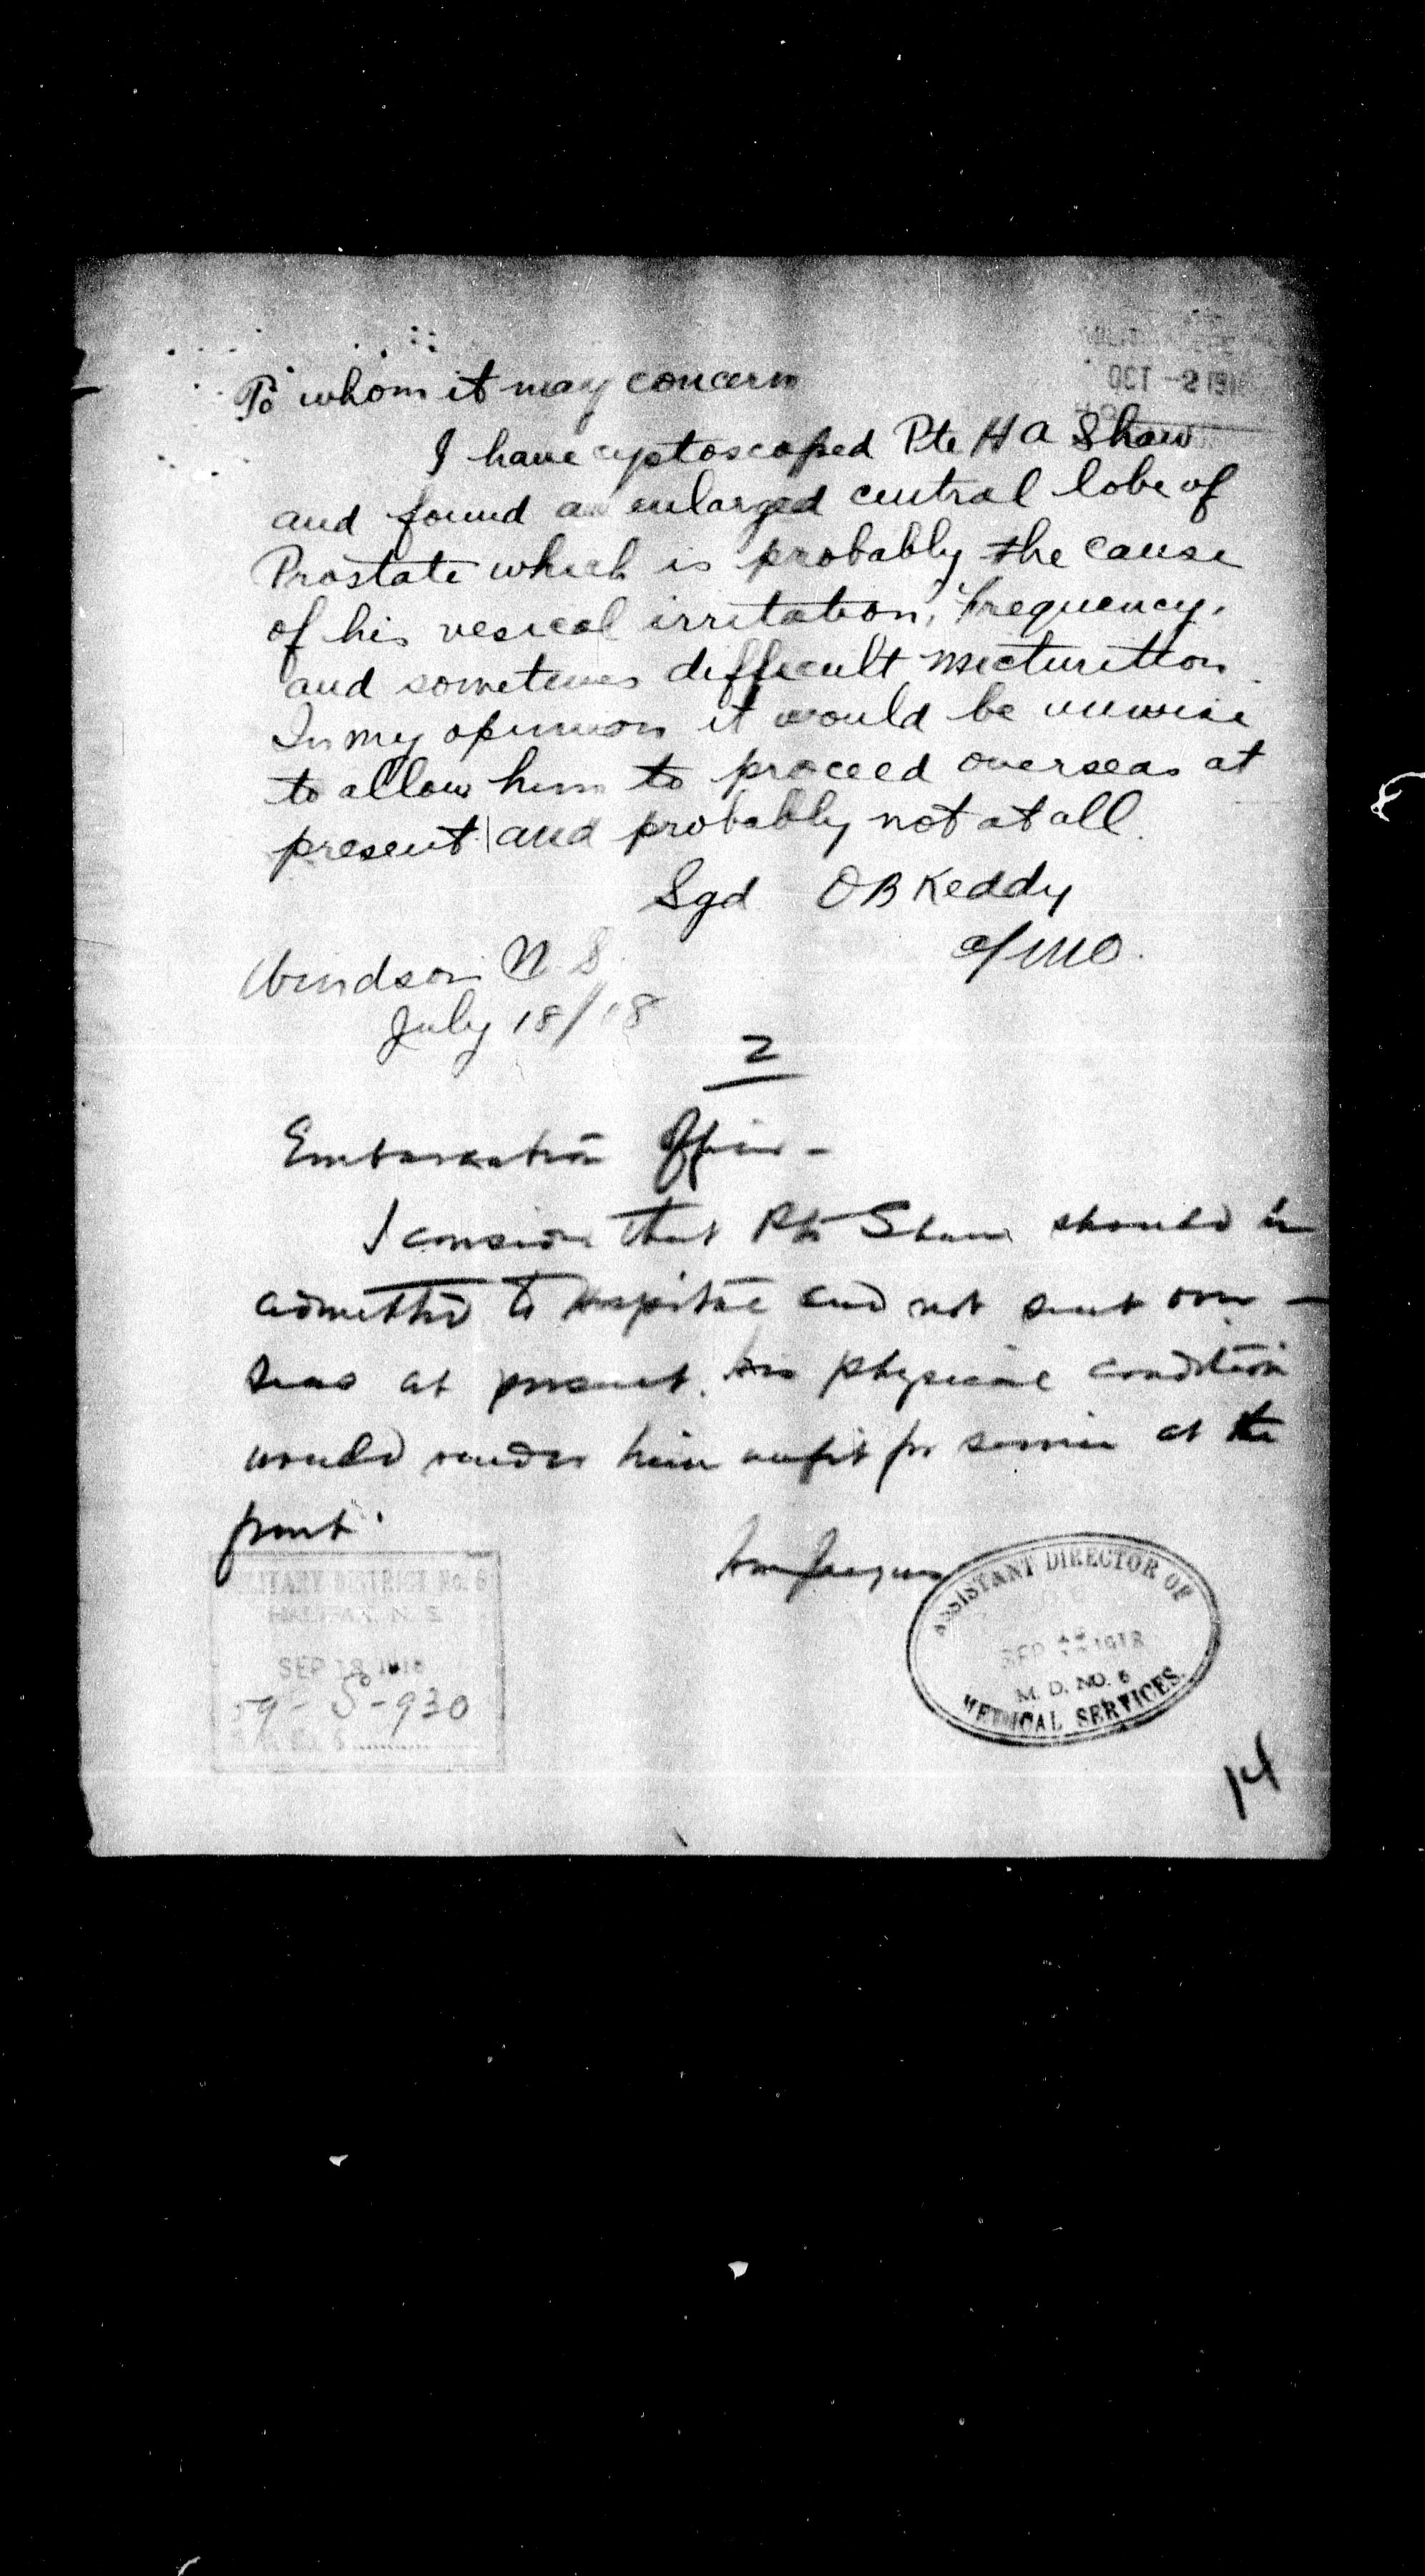 OCT -2 191
To whom it may concern
I have cyptoscoped Pte H A Shaw
and found an enlarged central lobe of
Prostate which is probably the cause
of his vesical irritation, frequency,
and sometimes difficult micturition
In my opinion it would be unwise
to allow him to proceed overseas at
present and probably not at all.
Sgd O B Keddy
a/MO.
Windsor N.S.
July 18/18
2
Embarkation Officer -
I consider that Pte Shaw should be
admitted to hospital and not sent over-
seas at present. His physical condition
would render him unfit for service at the
front.
MILITARY DISTRICT No. 6
HALIFAX, N. S.
SEP 18 1918
59-S-930
ASSISTANT DIRECTOR OF
SEP 1918
M. D. NO. 6
MEDICAL SERVICES.
14